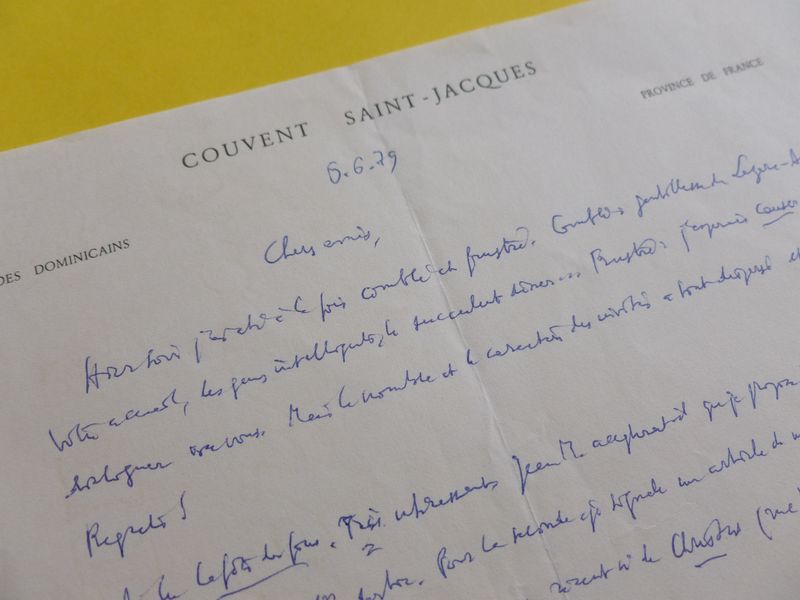 COUVENT SAINT-JACQUES
PROVINCE DE FRANCE
DES DOMINICAINS
6.6.79
Chers amis,
Hier soir j'ai été à la fois comblé et frustré. Comblé : gentillesse de
Votre accueil, les gens intelligents, le succulent dîner... Frustré : j'espérais causer
dialoguer avec vous. Mais le nombre et le caractère des invités a tout dispersé et
Regrets !
La fête des fous. Très intéressant. Jean M. accepterait-il que je propose
Pour la seconde je signale un article de
récent n° de Christus